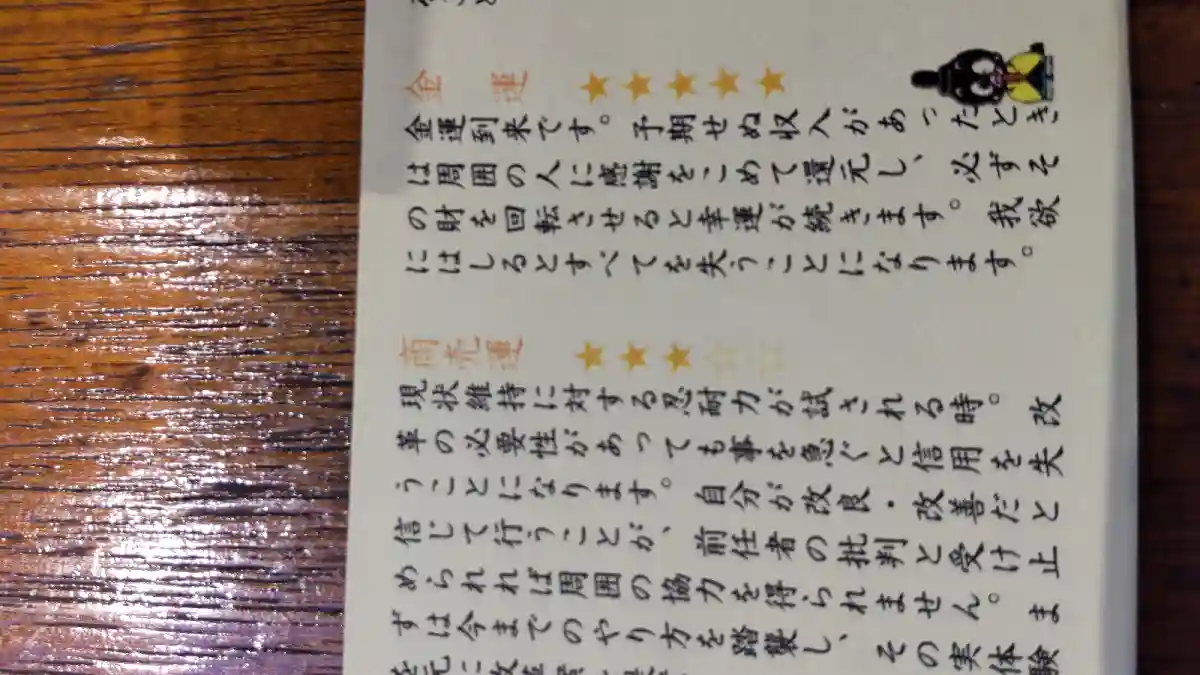 金運 ★★★★★
金運到来です。予期せぬ収入があったとき
は周囲の人に感謝をこめて還元し、必ずそ
の財を回転させると幸運が続きます。我欲
にはしるとすべてを失うことになります。
商売運 ★★★☆☆
現状維持に対する忍耐力が試される時。改
革の必要性があっても事を急ぐと信用を失
うことになります。自分が改良・改善だと
信じて行うことが、前任者の批判と受け止
められれば周囲の協力を得られません。ま
ずは今までのやり方を踏襲し、その実体験
を元に改革